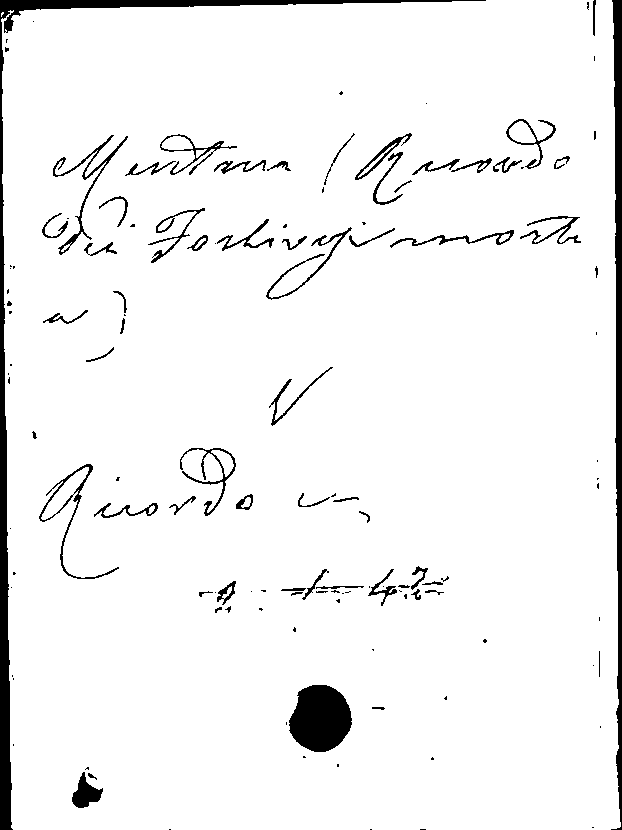 Mentana (Ricordo
dei Forlivesi morti
a)
V
Ricordo